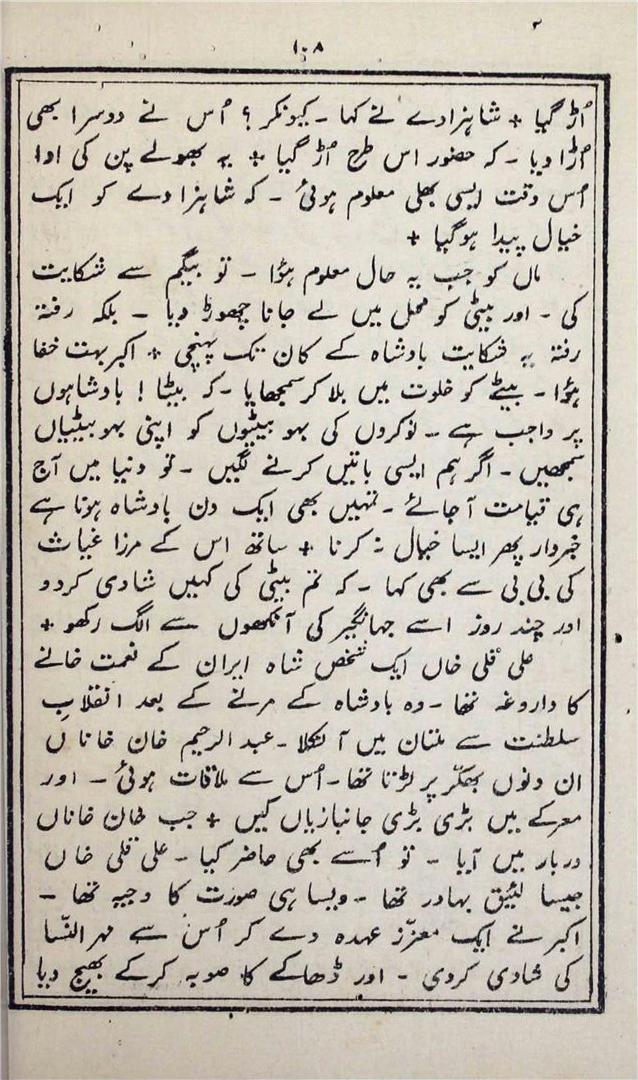 ۱۰۸
اُڑ گیا + شاہزادے نے کہا ۔ کیونکر ؟ اُس نے دوسرا بھی
اُڑا دیا ۔ کہ حضور اس طرح اُڑ گیا + یہ بھولے پن کی ادا
اُس وقت ایسی بھلی معلوم ہوئی ۔ کہ شاہزادے کو ایک
خیال پیدا ہوگیا +
ماں کو جب یہ حال معلوم ہؤا ۔ تو بیگم سے شکایت
کی ۔ اور بیٹی کو محل میں لے جانا چھوڑ دیا ۔ بلکہ رفتہ
رفتہ یہ شکایت بادشاہ کے کان تک پہنچی + اکبر بہت خفا
ہؤا ۔ بیٹے کو خلوت میں بلا کر سمجھایا ۔ کہ بیٹا ! بادشاہوں
پر واجب ہے ۔ نوکروں کی بہو بیٹیوں کو اپنی بہو بیٹیاں
سمجھیں ۔ اگر ہم ایسی باتیں کرنے لگیں ۔ تو دنیا میں آج
ہی قیامت آ جائے ۔ تمہیں بھی ایک دن بادشاہ ہونا ہے
خبردار پھر ایسا خیال نہ کرنا + ساتھ اس کے مرزا غیاث
کی بی بی سے بھی کہا ۔ کہ تم بیٹی کی کہیں شادی کردو
اور چند روز اسے جہانگیر کی آنکھوں سے الگ رکھو +
علی قلی خاں ایک شخص شاہ ایران کے نعمت خانے
کا داروغہ تھا ۔ وہ بادشاہ کے مرنے کے بعد انقلابِ
سلطنت سے ملتان میں آ نکلا ۔ عبد الرحیم خان خاناں
ان دنوں بھکّر پر لڑتا تھا ۔ اُس سے ملاقات ہوئی ۔ اور
معرکے میں بڑی بڑی جانبازیاں کیں + جب خان خاناں
دربار میں آیا ۔ تو اُسے بھی حاضر کیا ۔ علی قلی خاں
جیسا لئیق بہادر تھا ۔ ویسا ہی صورت کا وجیہ تھا ۔
اکبر نے ایک معزّز عہدہ دے کر اُس سے مہر النّسا
کی شادی کردی ۔ اور ڈھاکے کا صوبہ کرکے بھیج دیا